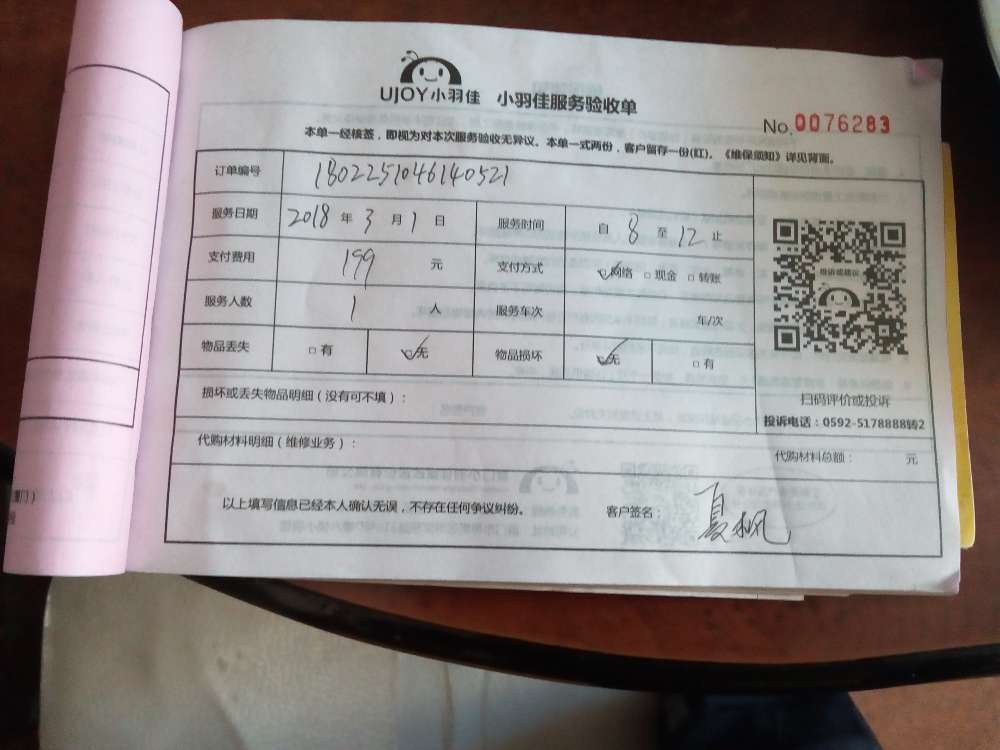 UJOY小羽佳 小羽佳服务验收单
No. 0076283
本单一经核签，即视为对本次服务验收无异议。本单一式两份，客户留存一份(红)。《维保须知》详见背面。
订单编号 1802251046140521
服务日期 2018 年 3 月 1 日 服务时间 自 8 至 12 止
支付费用 199 元 支付方式 ☑网络 □现金 □转账
服务人数 1 人 服务车次 车/次
物品丢失 □有 ☑无 物品损坏 ☑无 □有
扫码评价或投诉
投诉电话：0592-5178888转2
损坏或丢失物品明细（没有可不填）：
代购材料明细（维修业务）： 代购材料总额： 元
以上填写信息已经本人确认无误，不存在任何争议纠纷。 客户签名： 夏枫